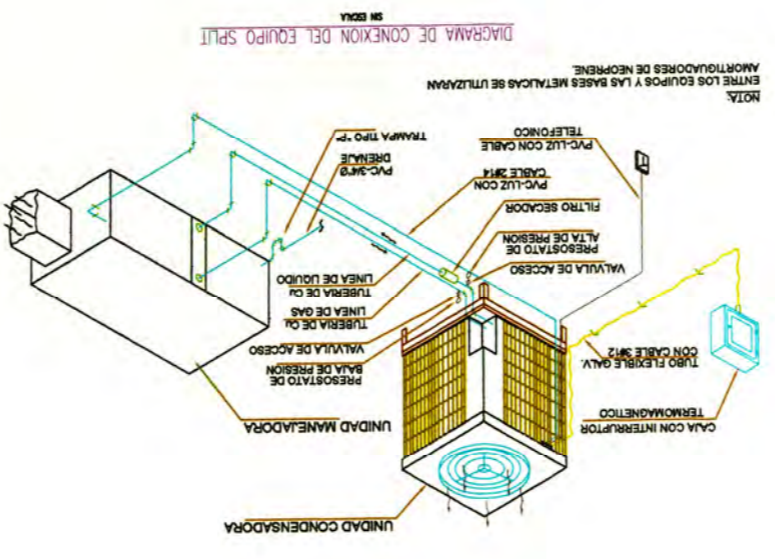 UNIDAD CONDENSADORA
CAJA CON INTERRUPTOR
TERMOMAGNETICO
TUBO FLEXIBLE GALV.
CON CABLE 3#12
UNIDAD MANEJADORA
PRESOSTATO DE
BAJA DE PRESION
VALVULA DE ACCESO
TUBERIA DE Cu
LINEA DE GAS
TUBERIA DE Cu
LINEA DE LIQUIDO
VALVULA DE ACCESO
PRESOSTATO DE
ALTA DE PRESION
FILTRO SECADOR
PVC-LUZ CON
CABLE 2#14
PVC-LUZ CON CABLE
TELEFONICO
PVC-3/4"Ø
DRENAJE
TRAMPA TIPO "P"
NOTA:
ENTRE LOS EQUIPOS Y LAS BASES METALICAS SE UTILIZARAN
AMORTIGUADORES DE NEOPRENE
DIAGRAMA DE CONEXION DEL EQUIPO SPLIT
SIN ESCALA